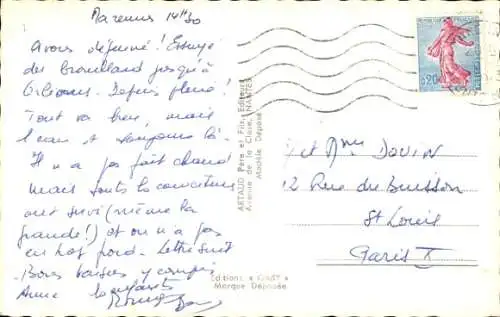 Marennes 14h30
Avons déjeuné ! Essuyé
des brouillard jusqu'à
Orléans. Depuis pleine !
Tout va bien, mais
l'eau et toujours là
Il n'a pas fait chaud
mais toute la
ont suivi (même la
grande !) et on n'a pas
eu trop froid. Lettre suit
Bons baisers y compris
Anne les enfants
ARTAUD Père et Fils, Editeurs
Avenue de la Close, NANTES
Modèle Déposé
Editions « GABY »
Marque Déposée
0,20
et Mme DOUIN
12 Rue du Buisson
St Louis
Paris X